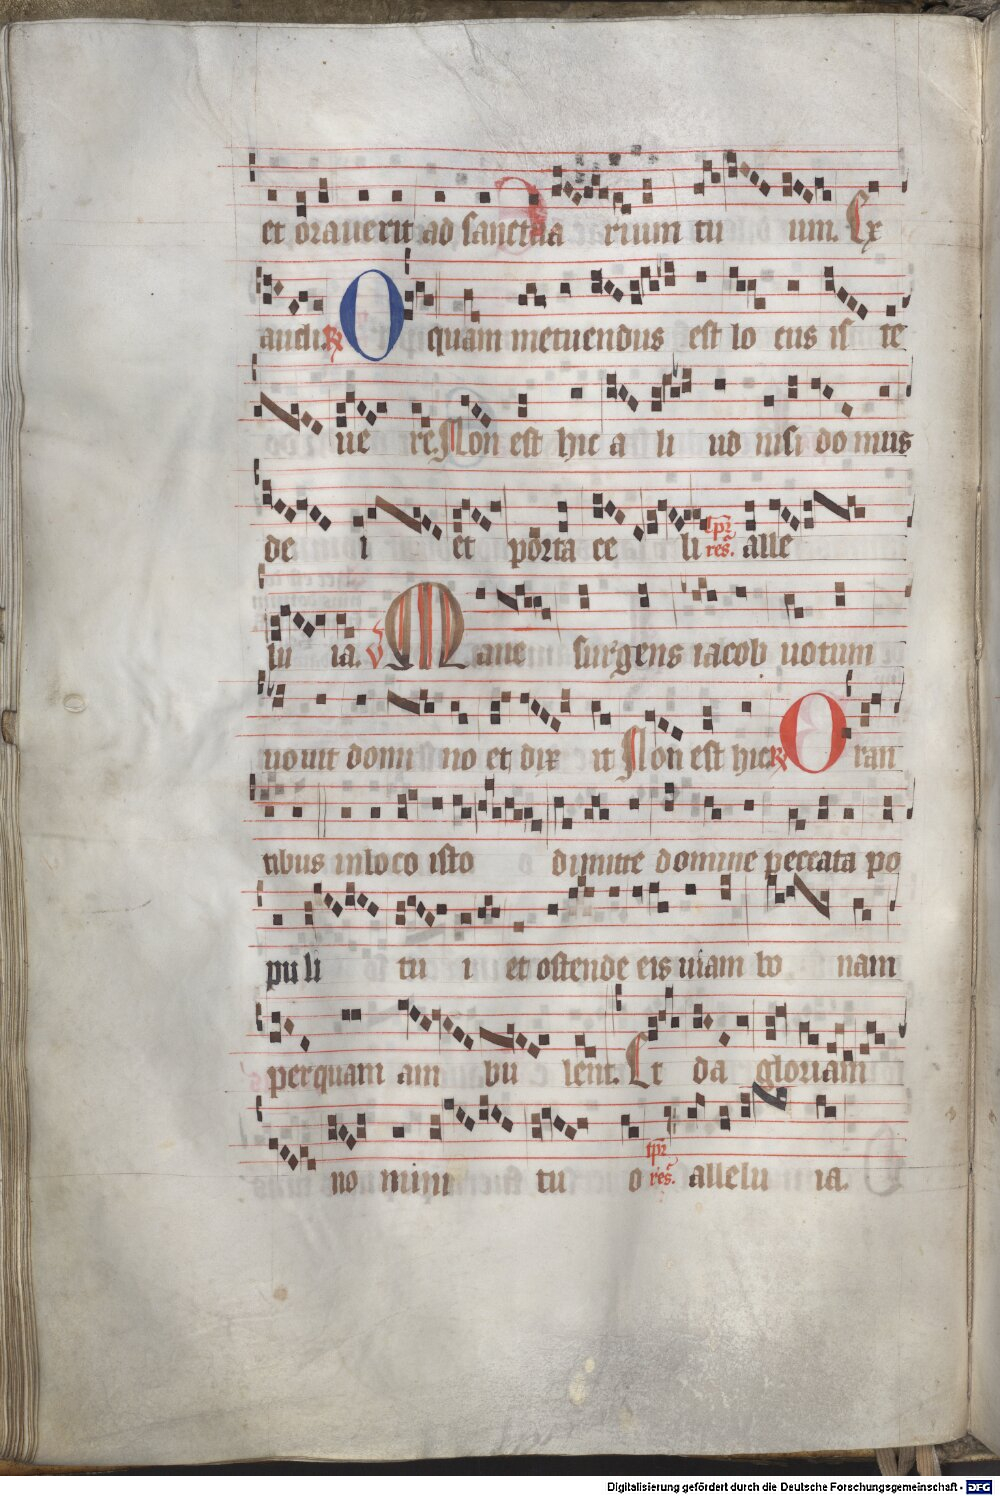 et orauerit ad sanctua rium tu um. Ex
audi. R O quam metuendus est lo cus is te
ue re. Non est hic a li ud nisi domus
de i et porta ce li tpr res. alle
lu ia. V Mane surgens iacob uotum
uouit domi no et dix it Non est hic R Oran
tibus in loco isto dimitte domine peccata po
puli tu i et ostende eis uiam bo nam
per quam am bu lent. Et da gloriam
no mini tu o tpr res. allelu ia.
Digitalisierung gefördert durch die Deutsche Forschungsgemeinschaft - DFG